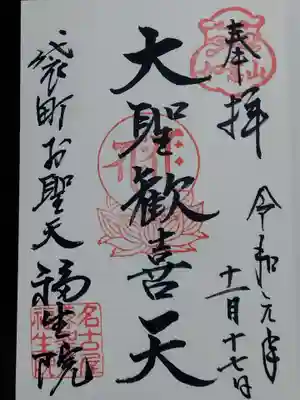 奉拝
令和元年
十一月十七日
大聖歓喜天
袋町お聖天
福生院
名古屋